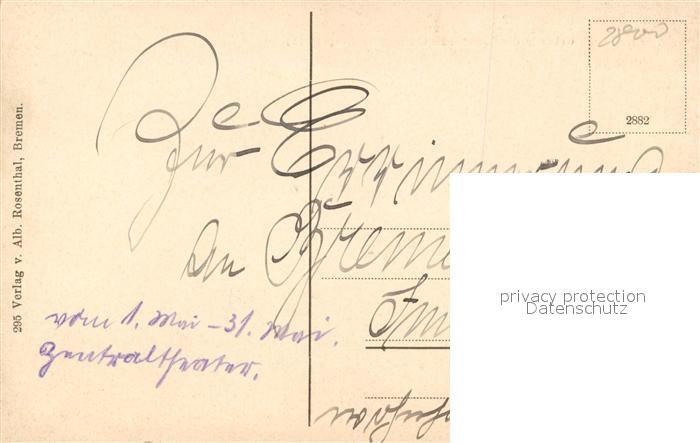 28000
2882
295 Verlag v. Alb. Rosenthal, Bremen.
Zur Errinnerung
an Breme
vom 1. Mai – 31. Mai.
Zentraltheater.
privacy protection
Datenschutz